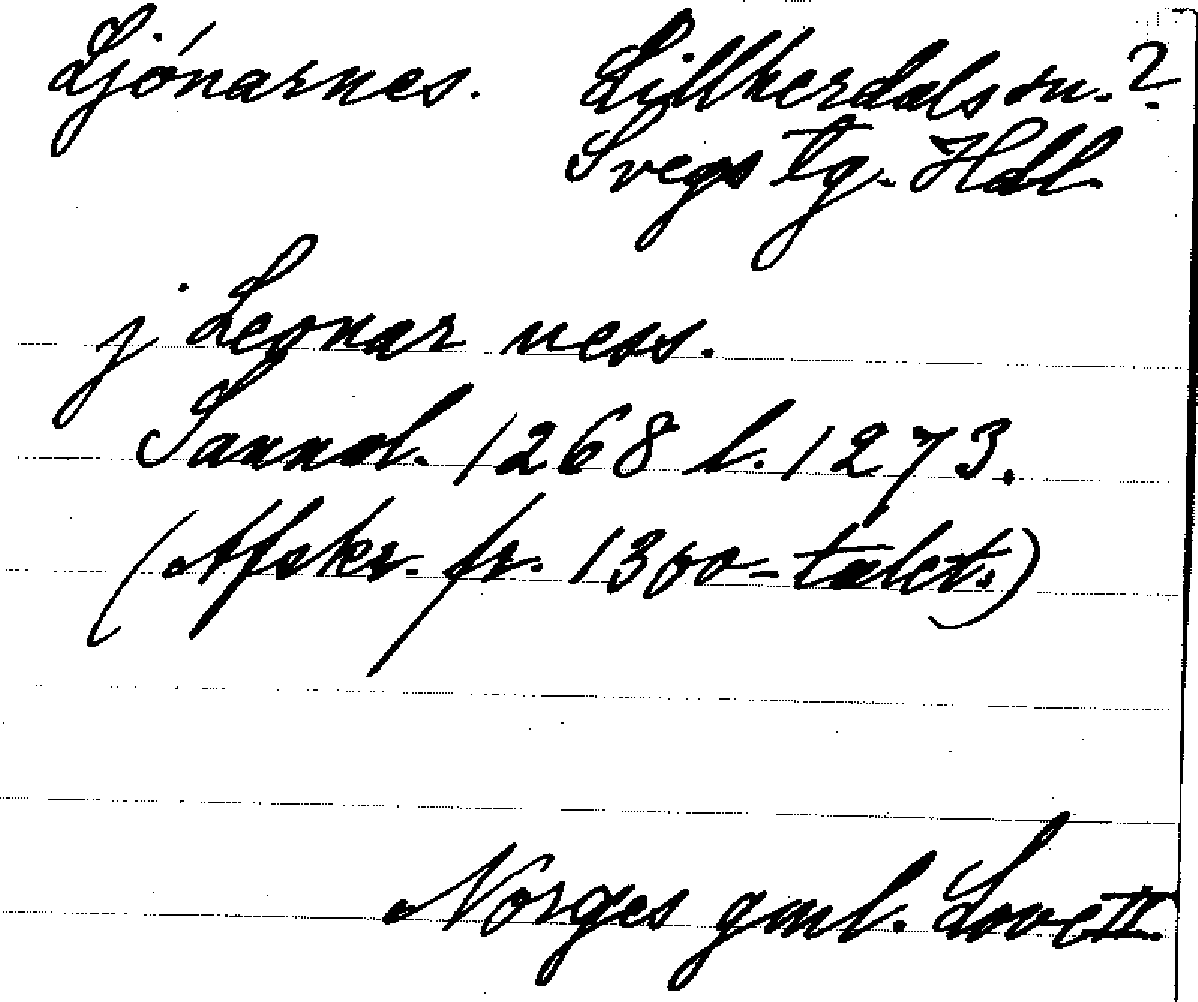 Ljónarnes. Lillherdals sn.?
Svegs tg. Hdl.
j Leonar ness.
Sannol. 1268 l. 1273.
(Afskr. fr. 1300-talet.)
Norges gml. Love II.